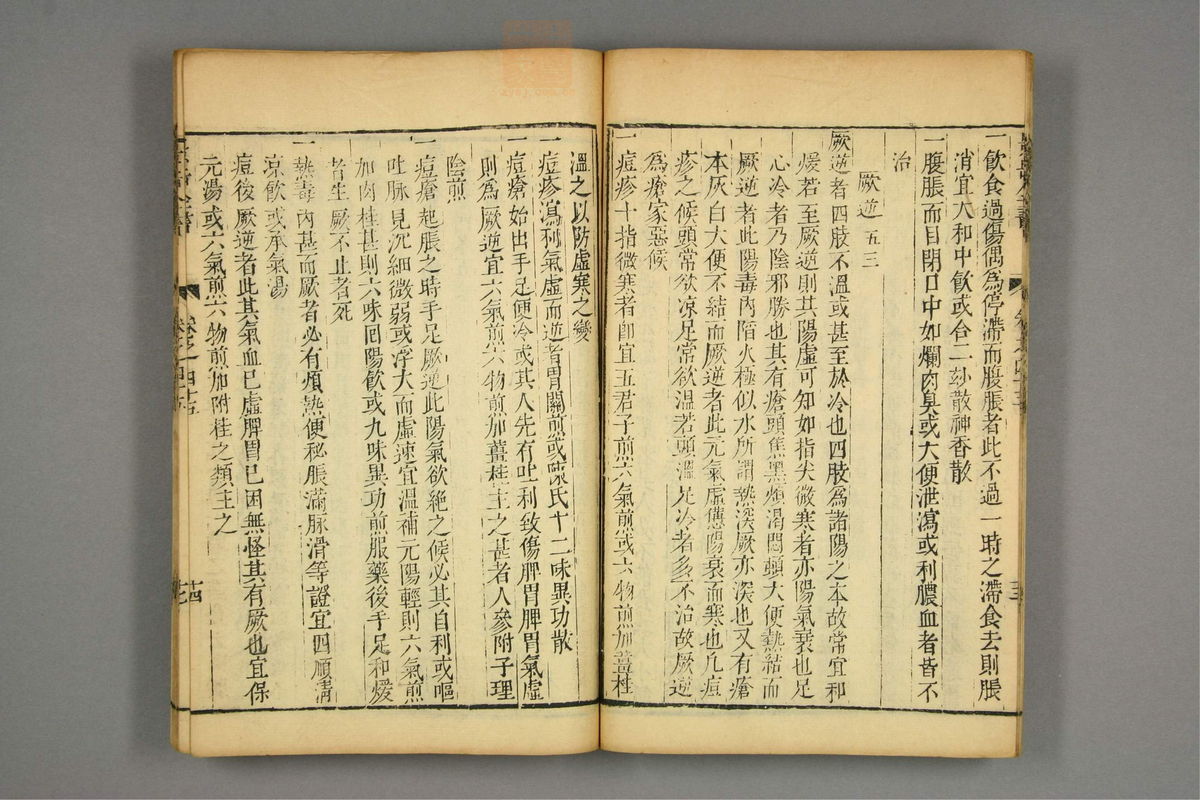 一飲食過傷偶爲停滯而腹脹者此不過一時之滯食去則脹
消宜大和中飲或合二妙散神香散
一腹脹而目閉口中如爛肉臭或大便泄瀉或利膿血者皆不
治
厥逆 五三
厥逆者四肢不溫或甚至於冷也四肢爲諸陽之本故常宜和
煖若至厥逆則其陽虛可知如指尖微寒者亦陽氣衰也足
心冷者乃陰邪勝也其有瘡頭焦黑煩渴悶頓大便熱結而
厥逆者此陽毒內陷火極似水所謂熱深厥亦深也又有瘡
本灰白大便不結而厥逆者此元氣虛憊陽衰而寒也凡痘
疹之候頭常欲凉足常欲温若頭溫足冷者多不治故厥逆
爲瘡家惡候
一痘疹十指微寒者卽宜五君子煎六氣煎或六物煎加薑桂
溫之以防虛寒之變
一痘疹瀉利氣虛而逆者胃關煎或陳氏十二味異功散
一痘瘡始出手足便冷或其人先有吐利致傷脾胃脾胃氣虛
則爲厥逆宜六氣煎六物煎加薑桂主之甚者人參附子理
陰煎
一痘瘡起脹之時手足厥逆此陽氣欲絶之候必其自利或嘔
吐脉見沉細微弱或浮大而虛速宜温補元陽輕則六氣煎
加肉桂甚則六味回陽飲或九味異功煎服藥後手足和煖
者生厥不止者死
一熱毒內甚而厥者必有煩熱便秘脹滿脉滑等證宜四順清
凉飲或承氣湯
一痘後厥逆者此其氣血已虛脾胃已困無怪其有厥也宜保
元湯或六氣煎六物煎加附桂之類主之